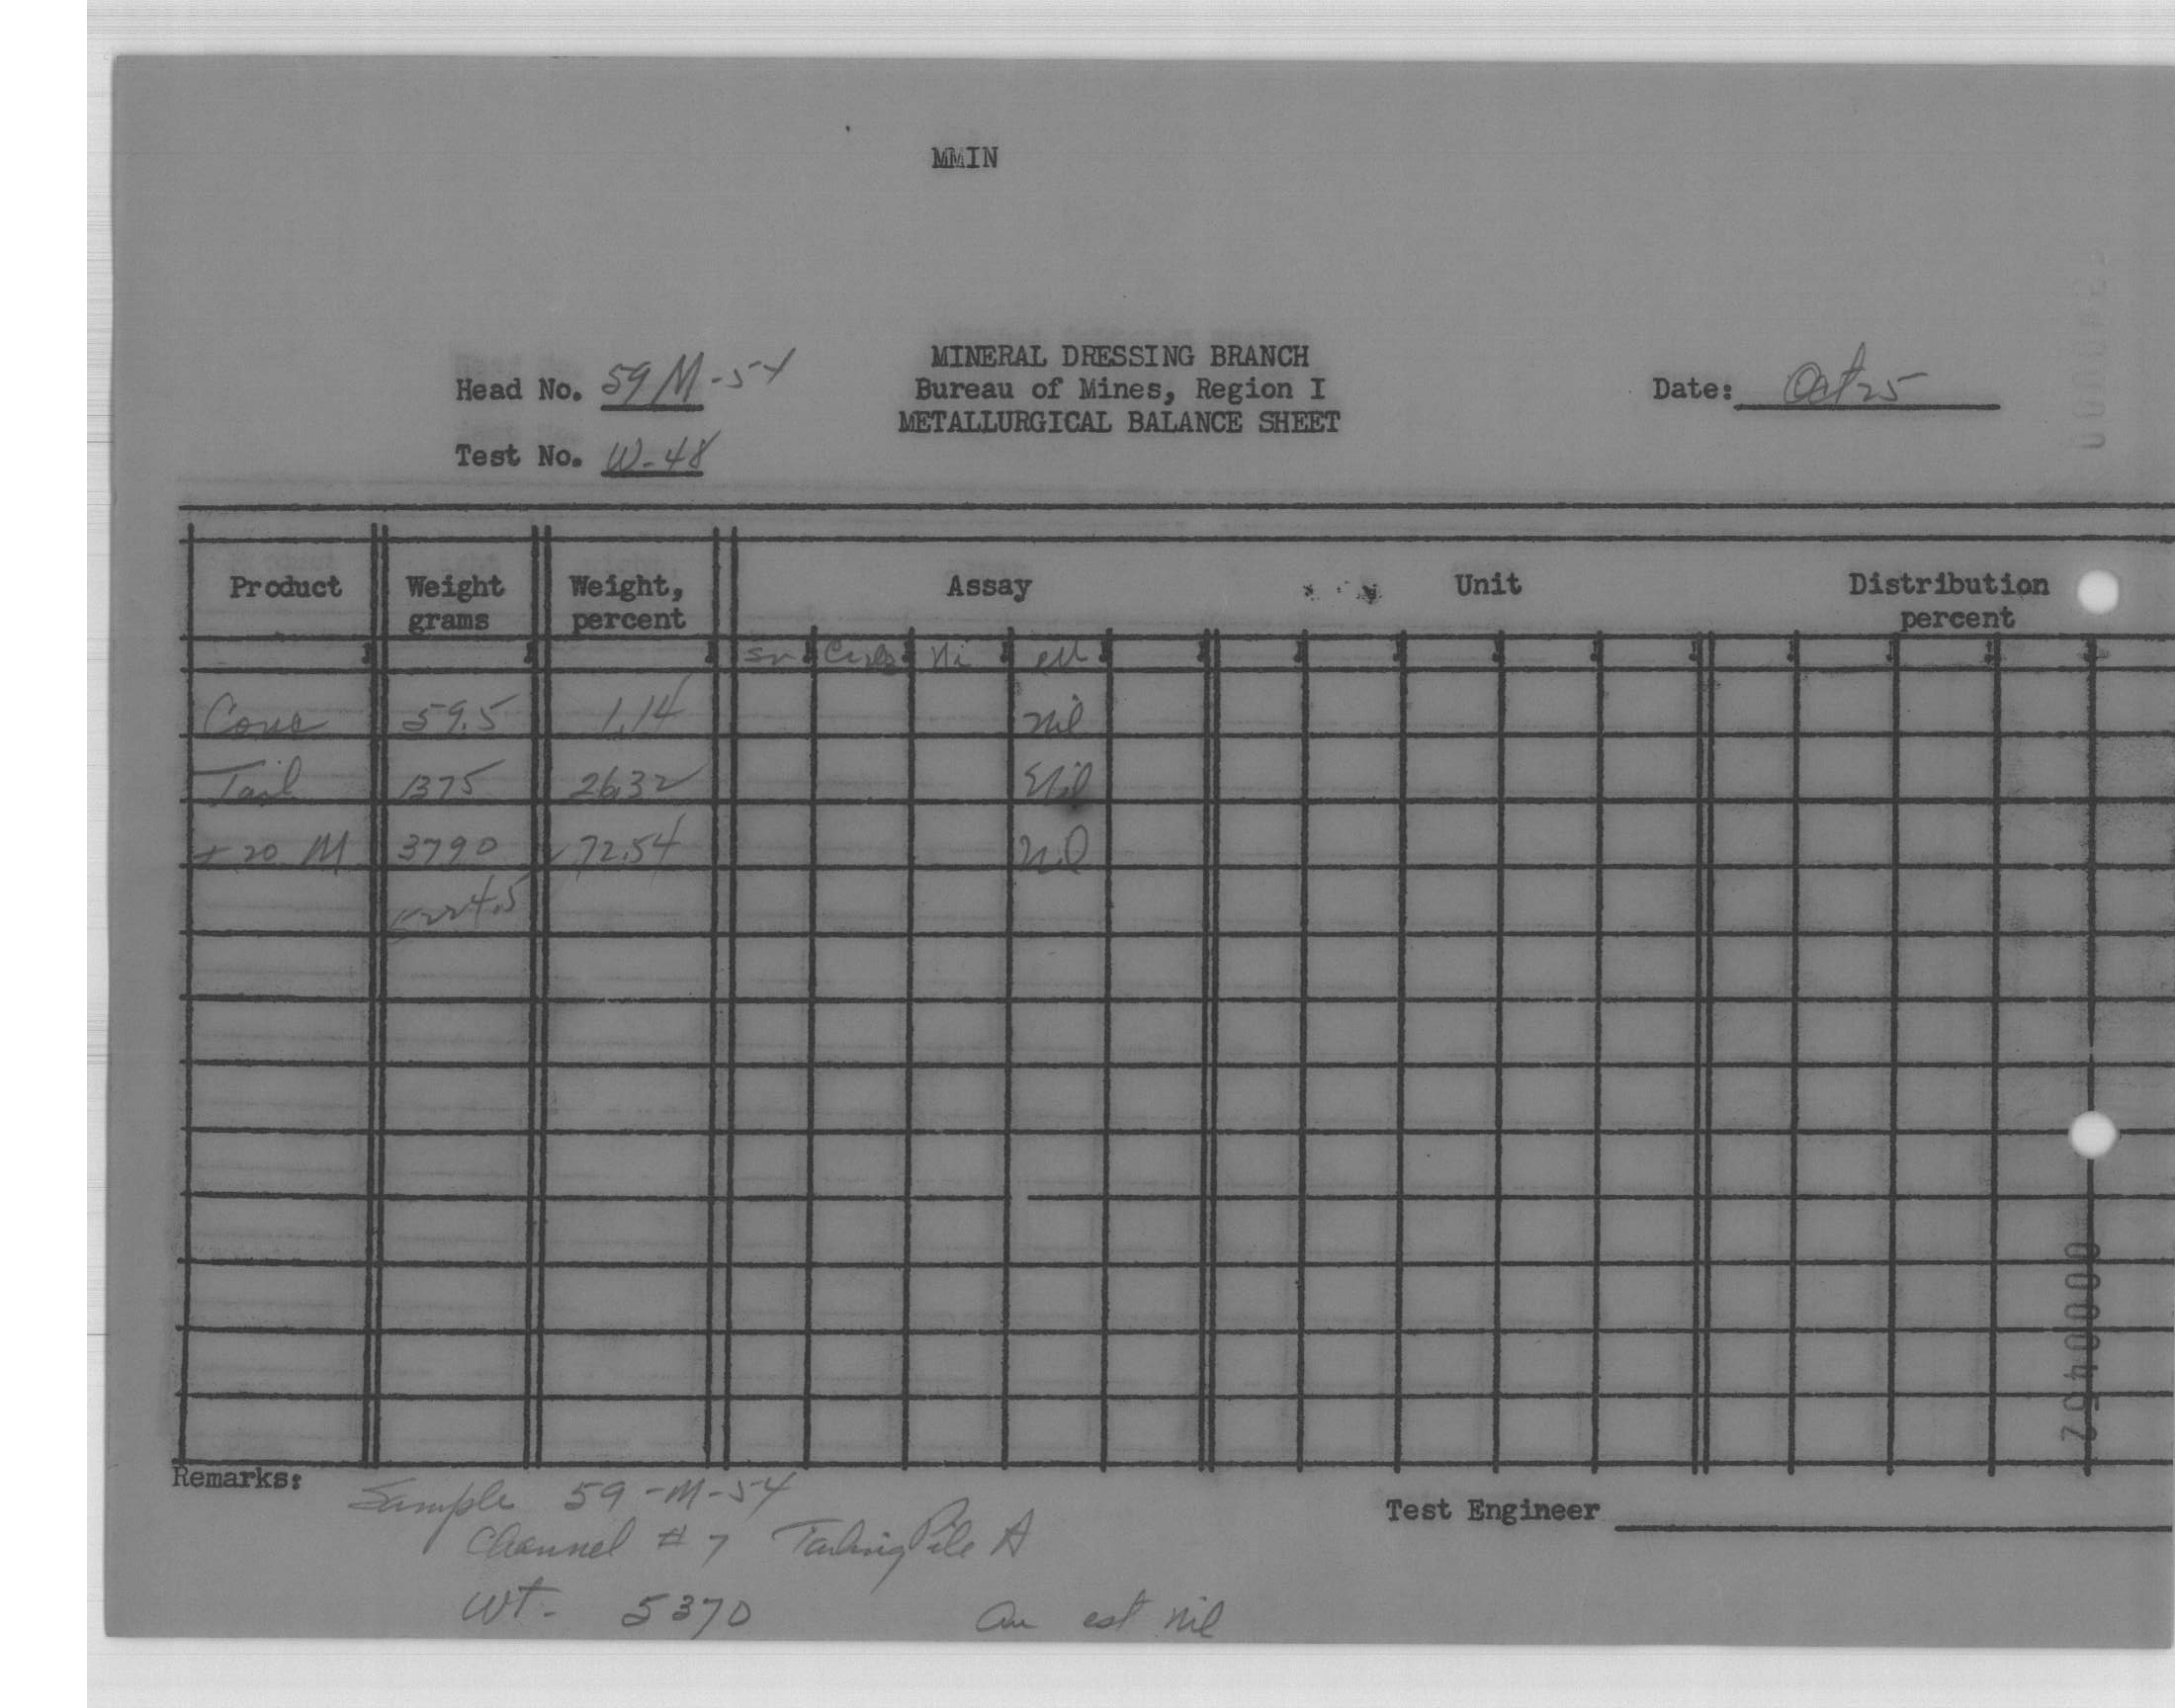 MMIN
Head No. 59M-54
Test No. W-48
MINERAL DRESSING BRANCH
Bureau of Mines, Region I
METALLURGICAL BALANCE SHEET
Date: Oct 25
Product Weight grams Weight, percent Assay Unit Distribution percent
Sn Ni eU
Conc 59.5 1.14 nil
Tail 1375 26.32 Nil
+20 M 3790 72.54 Nil
5224.5
0000462
Remarks:
Sample 59-M-54
Channel #7 Tailing Pile A
Wt- 5370 Au est nil
Test Engineer